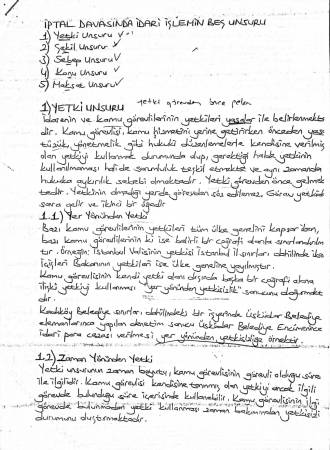 İPTAL DAVASINDA İDARİ İŞLEMİN BEŞ UNSURU
1) Yetki Unsuru ✓
2) Şekil Unsuru ✓
3) Sebep Unsuru ✓
4) Konu Unsuru ✓
5) Maksat Unsuru ✓
yetki görevden önce gelen
1) YETKİ UNSURU
İdarenin ve kamu görevlilerinin yetkileri yasalar ile belirlenmekte
dir. Kamu görevlisi, kamu hizmetini yerine getirirken önceden yasa
tüzük, yönetmelik gibi hukuki düzenlemelerle kendisine verilmiş
olan yetkiyi kullanmak durumunda olup, gerektiği halde yetkinin
kullanılmaması halide sorumluluk teşkil etmekte ve aynı zamanda
hukuka aykırılık sebebi olmaktadır. Yetki görevden önce gelmek
tedir. Yetkinin olmadığı yerde görevden söz edilemez. Görev yetkiden
sonra gelir ve ikinci bir ögedir
1.1) Yer Yönünden Yetki
Bazı kamu görevlilerinin yetkileri tüm ülke genelini kapsarken,
bazı kamu görevlilerinin ki ise belirli bir coğrafi alanla sınırlandırılm
tır. Örneğin: İstanbul Valisinin yetkisi İstanbul il sınırları dahilinde iken
İçişleri Bakanının yetkileri ise ülke geneline yayılmıştır.
Kamu görevlisinin kendi yetki alanı dışında başka bir coğrafi alana
ilişki yetkiyi kullanması "yer yönünden yetkisizlik" sonucunu doğurmakta
dır.
Kadıköy Belediye sınırları dahilindeki bir işyerinde Üsküdar Belediye
elemanlarınca yapılan denetim sonucu Üsküdar Belediye Encümenince
idari para cezası verilmesi yer yönünden yetkisizliğe örnektir.
1.2) Zaman Yönünden Yetki
Yetki unsurunun zaman boyutu, kamu görevlisinin görevli olduğu süre
ile ilgilidir. Kamu görevlisi kendisine tanınmış olan yetkiyi ancak ilgili
görevde bulunduğu süre içerisinde kullanabilir. Kamu görevlisinin ilgili
görevde bulunmadan yetki kullanması zaman bakımından yetkisizlik
durumunu oluşturmaktadır.